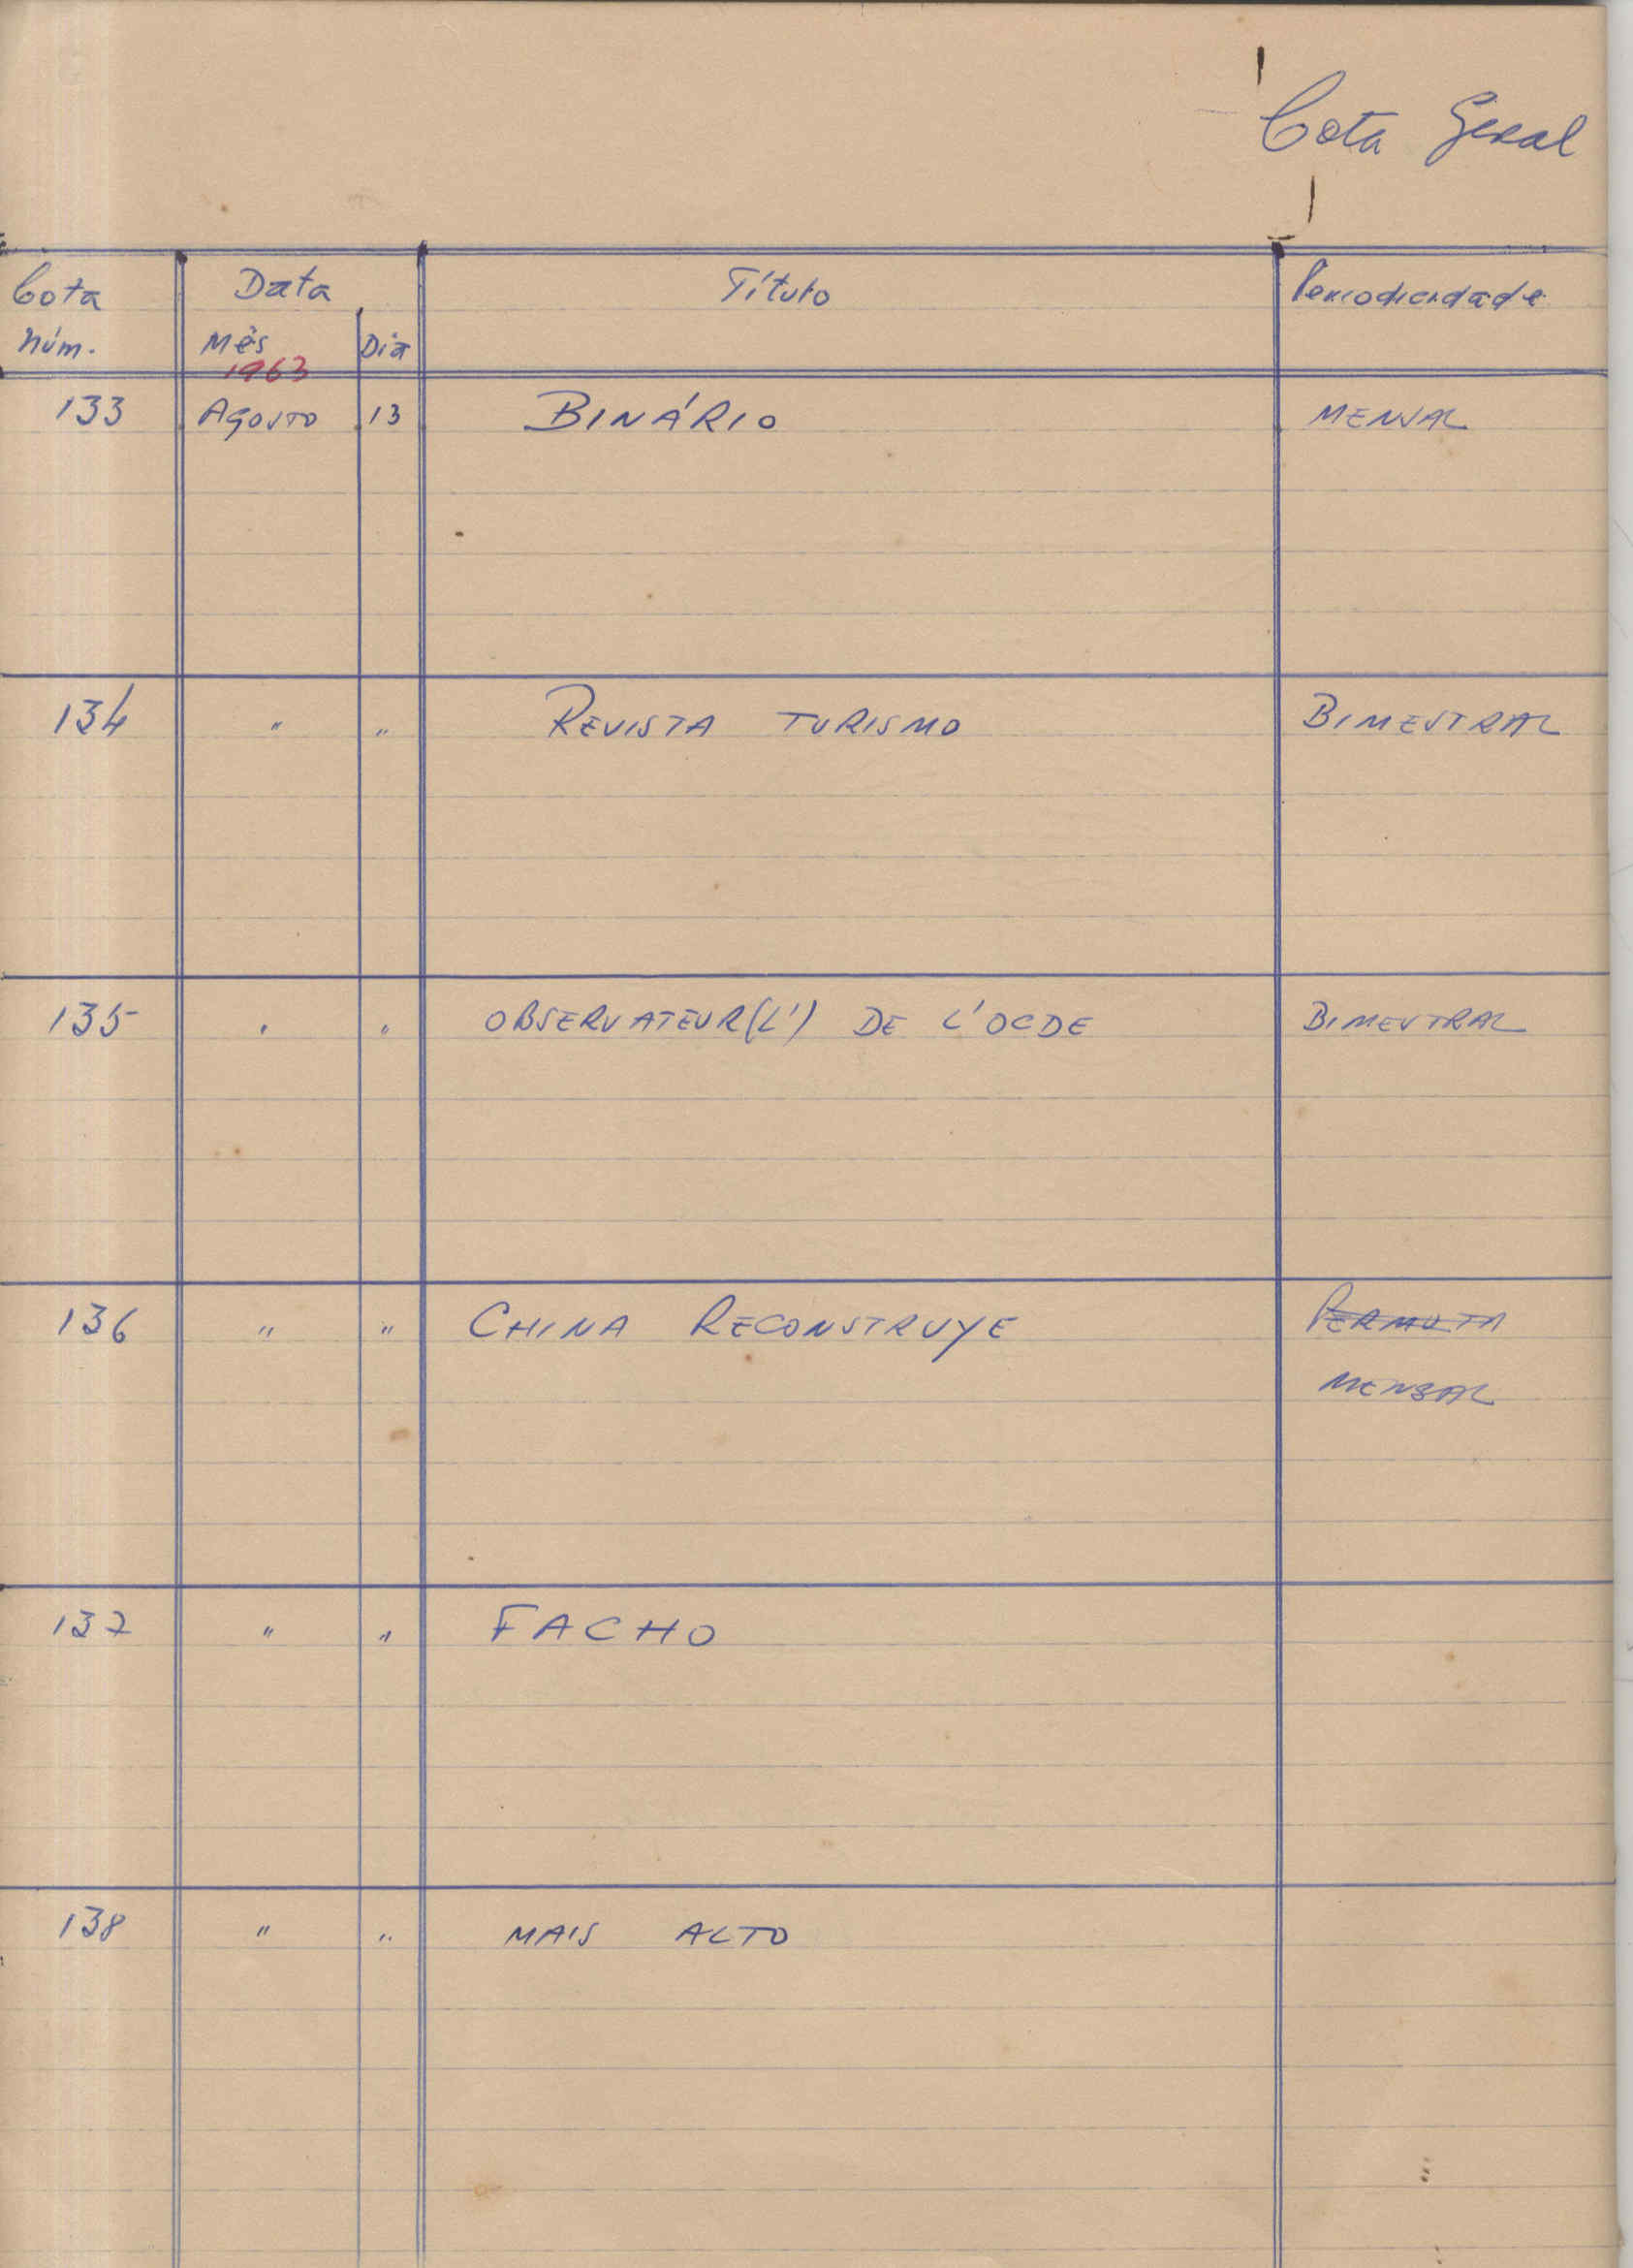 Cota Geral
Cota Data Título Periodicidade
Núm. Mês Dia
1963
133 Agosto 13 BINÁRIO MENSAL
134 " " REVISTA TURISMO BIMESTRAL
135 " " OBSERVATEUR(L') DE L'OCDE BIMESTRAL
136 " " CHINA RECONSTRUYE PERMUTA
MENSAL
137 " " FACHO
138 " " MAIS ALTO